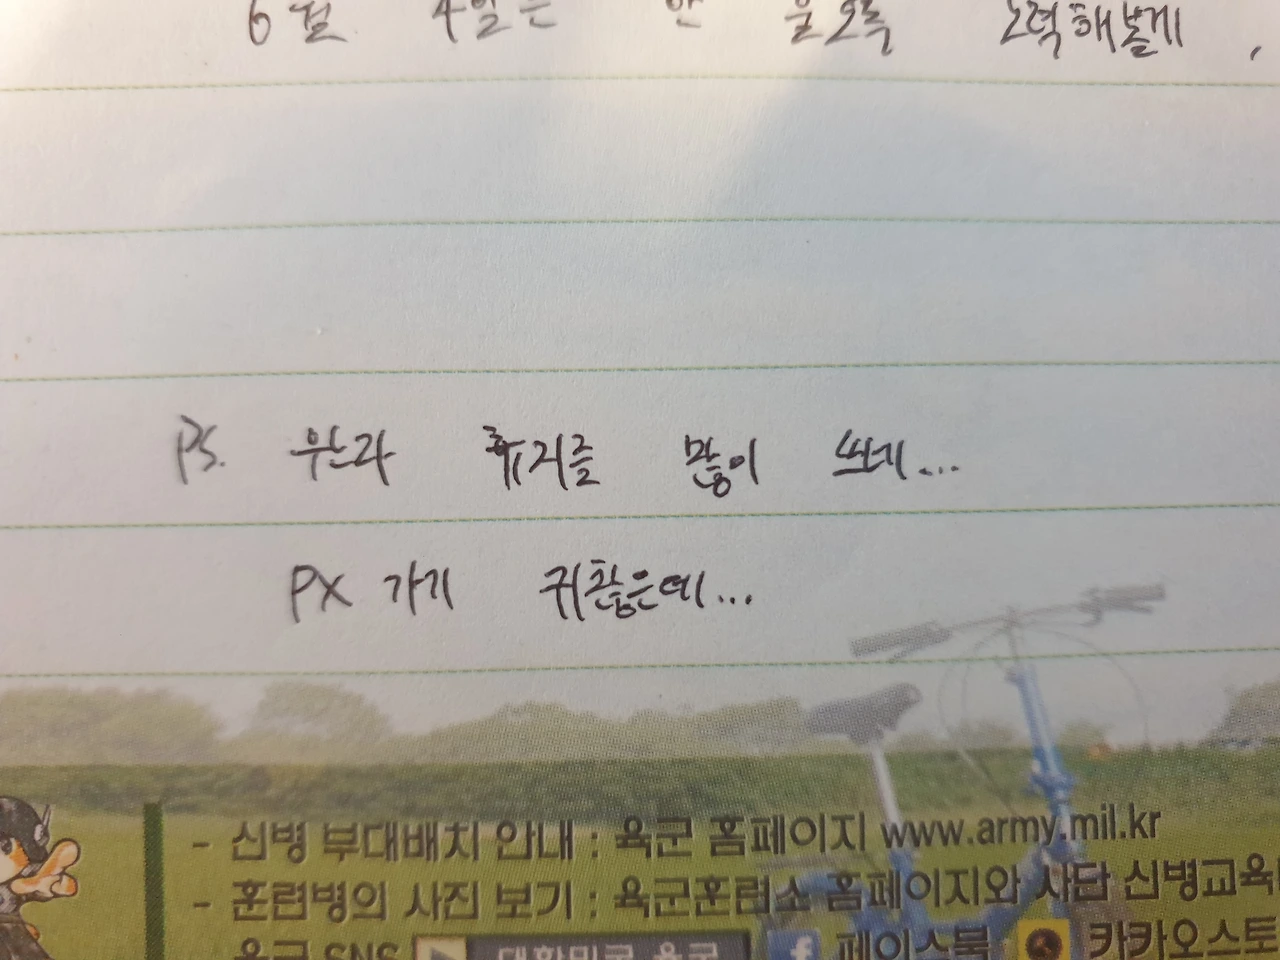 6월 4일은 안 울도록 노력해볼게,
PS. 우는라 휴지를 많이 쓰네...
PX 가기 귀찮은데...
- 신병 부대배치 안내 : 육군 홈페이지 www.army.mil.kr
- 훈련병의 사진 보기 : 육군훈련소 홈페이지와 사단 신병교육
육군 SNS 대한민국 육군 페이스북 카카오스토